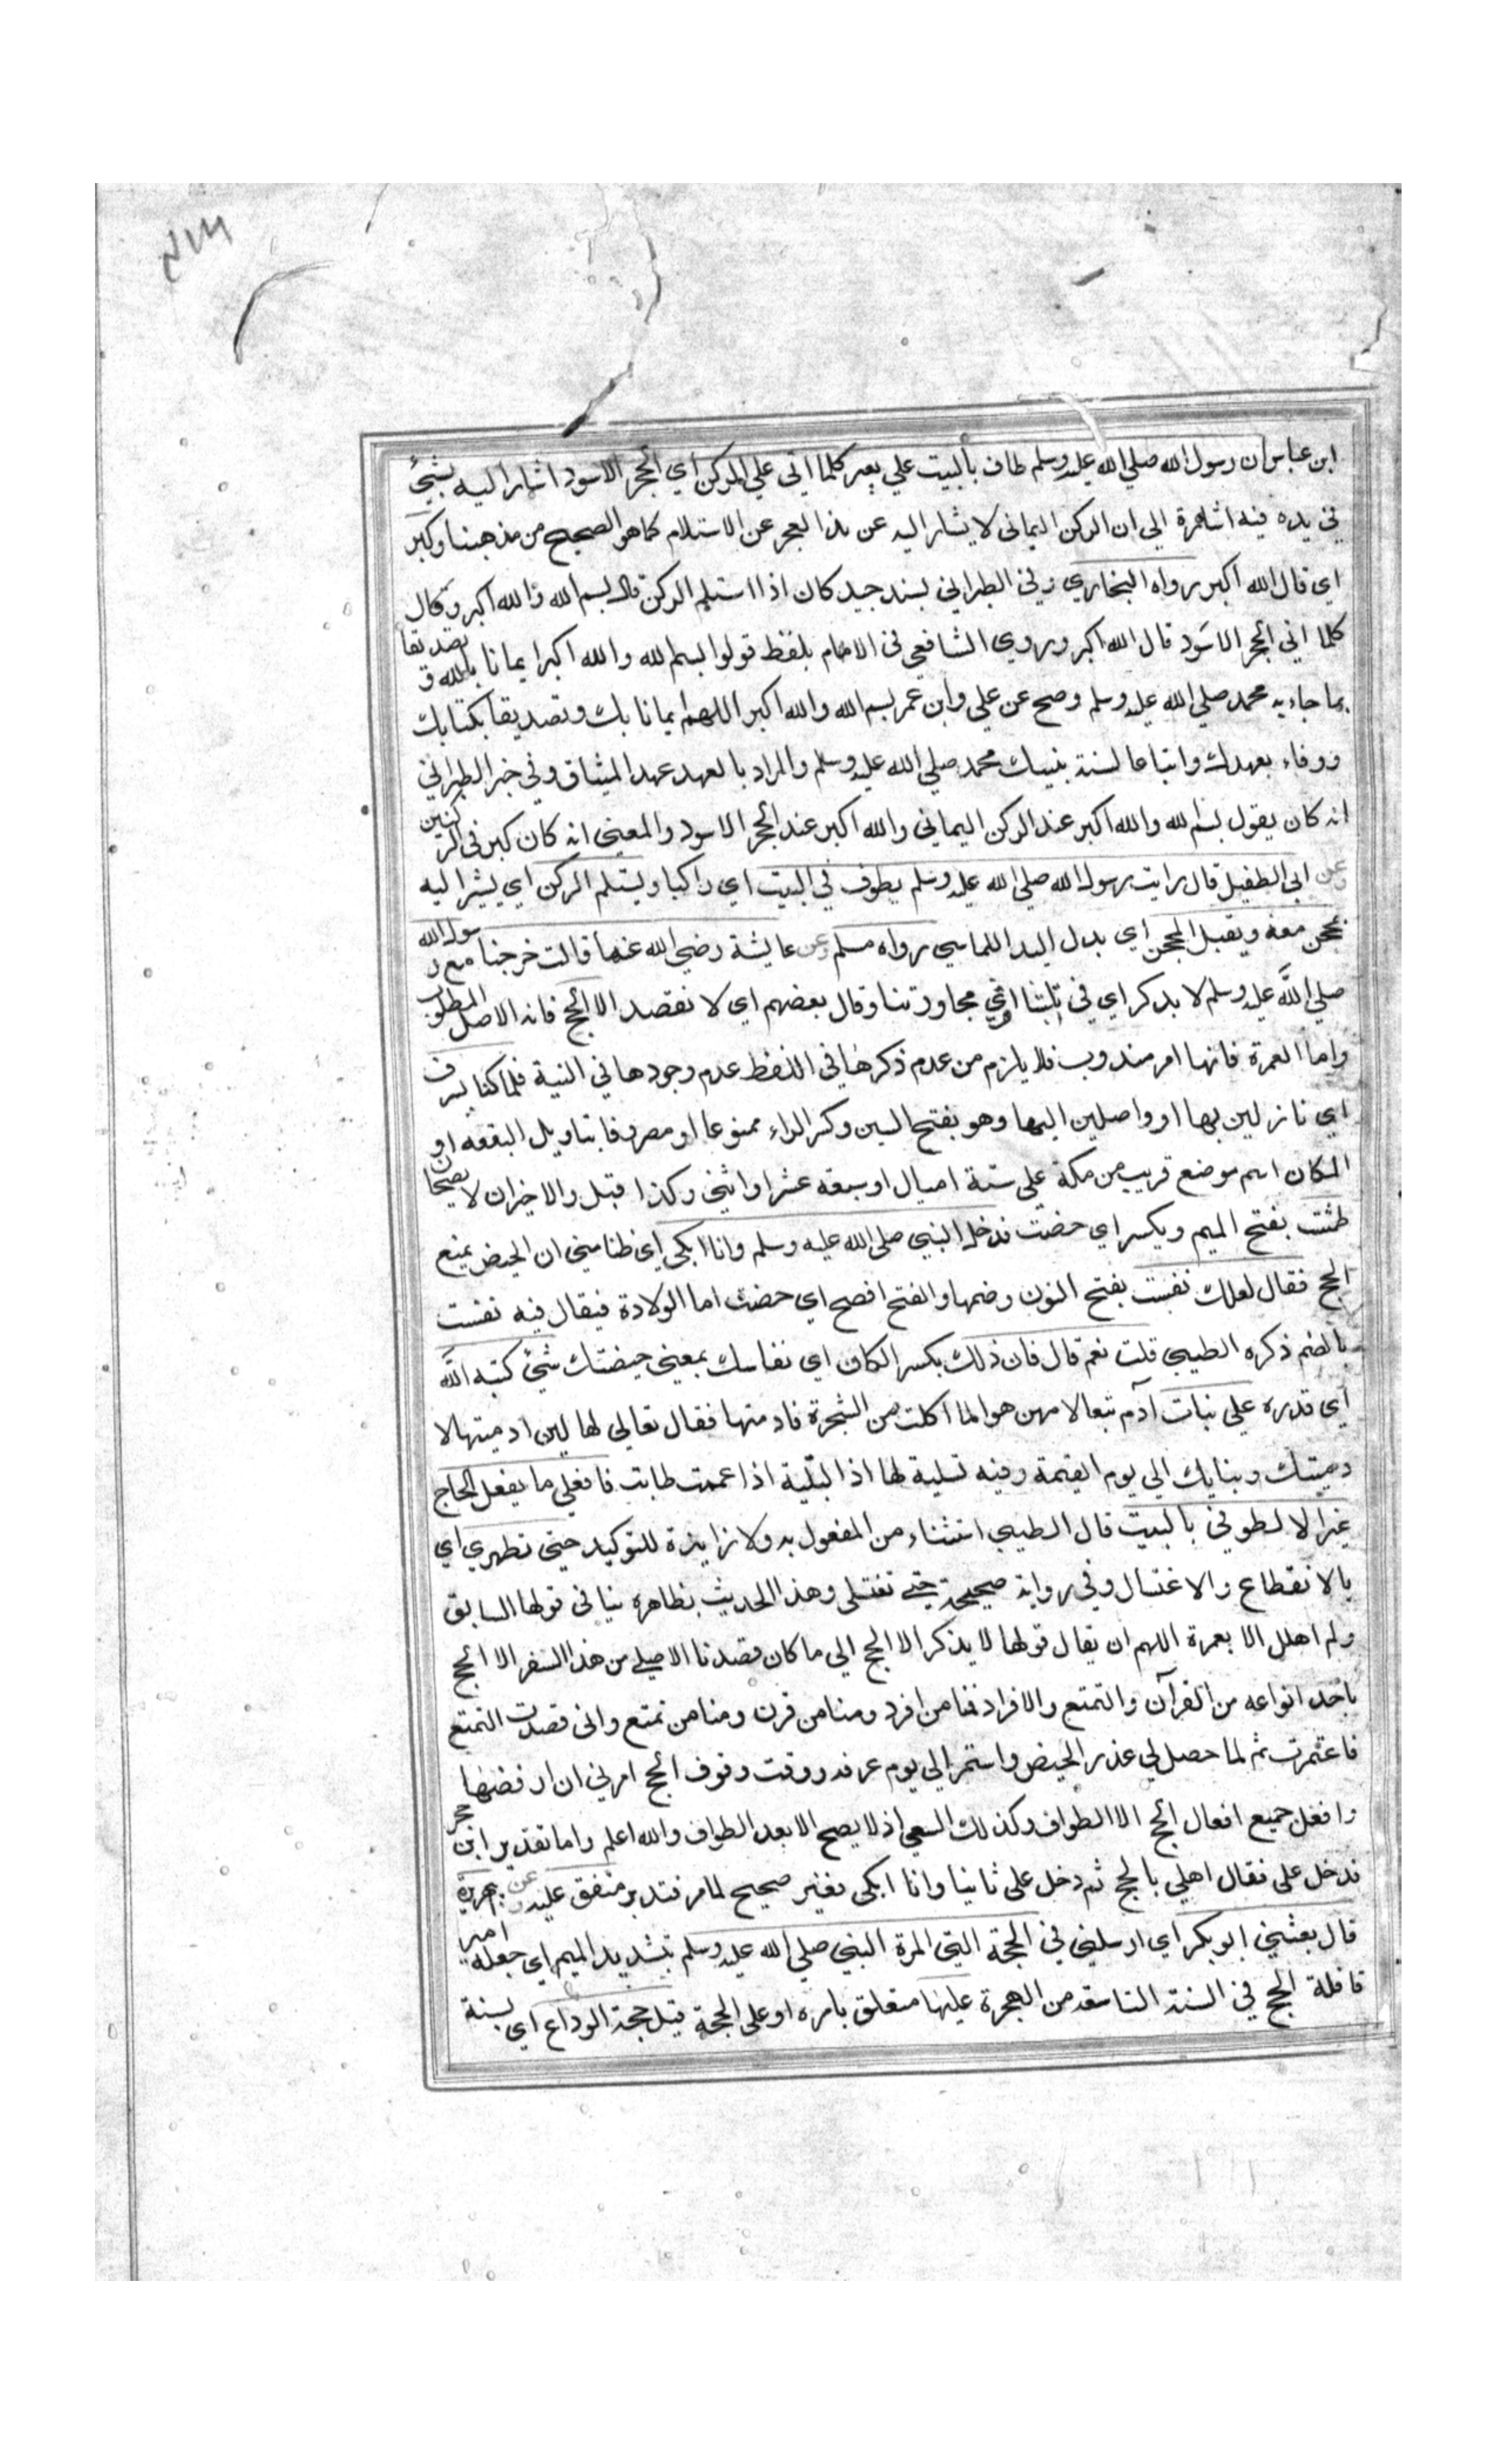 ابن عباس ان رسول الله صلي الله عليه وسلم طاف بالبيت علي بعير كلما اتي علي الركن اي الحجر الاسود اشار اليه بشيئ
في يده فيه اشارة الي ان الركن اليماني لا يشار اليه عن هذا العجز عن الاستلام كما هو الصحيح من مذهبنا وكبر
اي قال الله اكبر رواه البخاري وفي الطبراني بسند جيد كان اذا استلم الركن قال بسم الله والله اكبر وكان
كلما اتي الحجر الاسود قال الله اكبر وروي الشافعي في الام بلفظ قولوا بسم الله والله اكبر ايمانا بالله و تصديقا
بما جاء به محمد صلي الله عليه وسلم وصح عن علي وابن عمر بسم الله والله اكبر اللهم ايمانا بك وتصديقا بكتابك
ووفاء بعهدك واتباعا لسنة نبيك محمد صلي الله عليه وسلم والمراد بالعهد عهد الميثاق وفي خبر الطبراني
انه كان يقول بسم الله والله اكبر عند الركن اليماني والله اكبر عند الحجر الاسود والمعني انه كان كبر في الركنين
وعن ابي الطفيل قال رايت رسول الله صلي الله عليه وسلم يطوف في البيت اي راكبا ويستلم الركن اي يشير اليه
بمحجن معه ويقبل المحجن اي بدل اليد اللماسي رواه مسلم وعن عايشة رضي الله عنها قالت خرجنا مع رسول الله
صلي الله عليه وسلم لا يذكر اي في تلبيتنا او في محاورتنا وقال بعضهم اي لا نقصد الا الحج فانه الاصل المطلوب
واما العمرة فانها امر مندوب فلا يلزم من عدم ذكرها في اللفظ عدم وجودها في النية فلما كنا بسرف
اي نازلين بها او واصلين اليها وهو بفتح السين وكسر الراء ممنوعا او مصروفا بتاويل البقعه او
المكان اسم موضع قريب من مكة علي ستة اميال او سبعه عشر او اثني وكذا قيل والاخيران لا يصحان
طمثت بفتح الميم ويكسر اي حضت فدخل النبي صلي الله عليه وسلم وانا ابكي اي ظنا مني ان الحيض يمنع
الحج فقال لعلك نفست بفتح النون وضمها والفتح افصح اي حضت اما الولادة فيقال فيه نفست
بالضم ذكره الطيبي قلت نعم قال فان ذلك بكسر الكاف اي نفاسك بمعني حيضتك شيئ كتبه الله
اي قدره علي بنات آدم تبعا لامهن حوا لما اكلت من الشجرة فادمتها فقال تعالي لها لين ادميتها لا
دميتك وبناتك الي يوم القيمة وفيه تسلية لها اذ البلية اذا عمت طابت فافعلي ما يفعل الحاج
غير الا تطوفي بالبيت قال الطيبي استثناء من المفعول به ولا زايدة للتوكيد حتي تطهري اي
بالانقطاع والاغتسال وفي رواية صحيحة حتي تغتسلي وهذا الحديث بظاهره ينافي قولها السابق
ولم اهلل الا بعمرة اللهم ان يقال قولها لا يذكر الا الحج الي ما كان قصدنا الاصلي من هذا السفر الا الحج
باحد انواعه من القرآن والتمتع والافراد فمنا من افرد ومنا من قرن ومنا من تمتع واني قصدت التمتع
فاعتمرت ثم لما حصل لي عذر الحيض واستمر الي يوم عرفه ووقت وقوف الحج امرني ان ارفضها
وافعل جميع افعال الحج الا الطواف وكذلك السعي اذ لا يصح الا بعد الطواف والله اعلم واما تقدير ابن حجر
فدخل علي فقال اهلي بالحج ثم دخل علي ثانيا وانا ابكي فغير صحيح لما مر فتدبر متفق عليه وعن ابي هريرة
قال بعثني ابو بكر اي ارسلني في الحجة التي امره النبي صلي الله عليه وسلم بتشديد الميم اي جعله امير
قافلة الحج في السنة التاسعه من الهجرة عليها متعلق بامره او علي الحجة قبل حجة الوداع اي بسنة